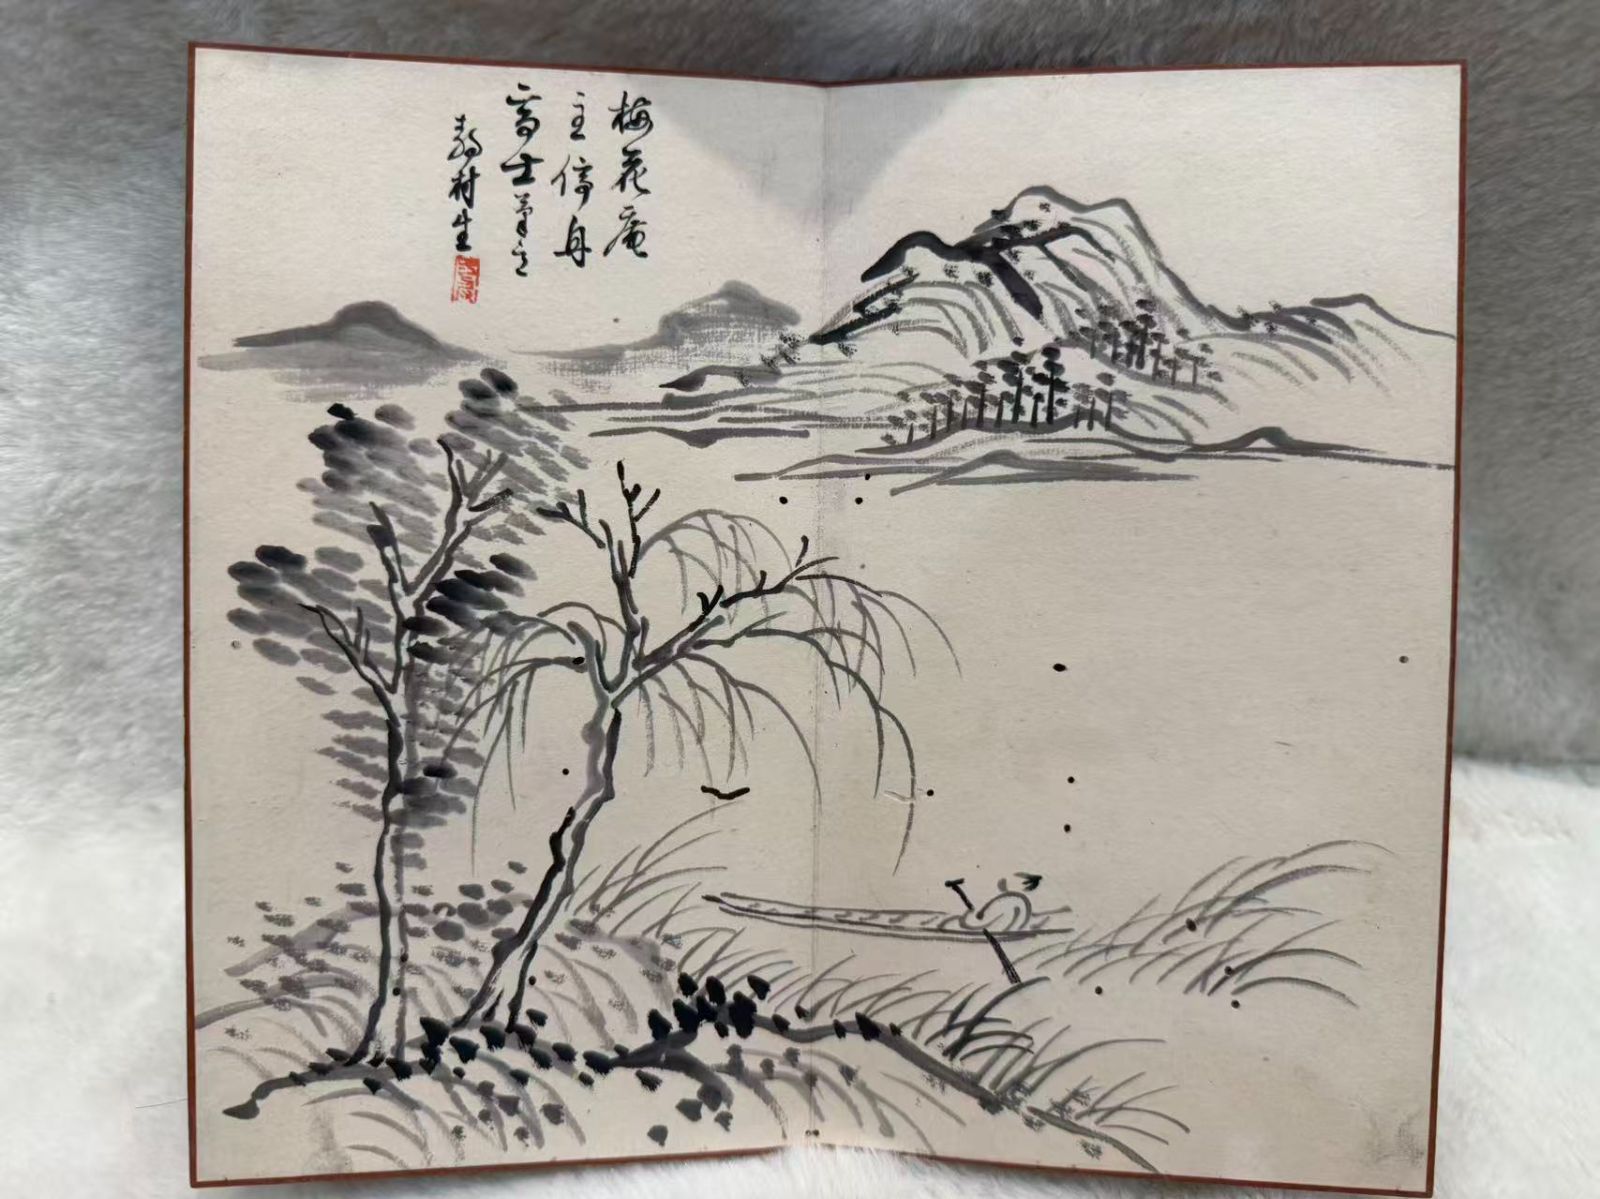 梅花庵
主停舟
高士筆之
村生